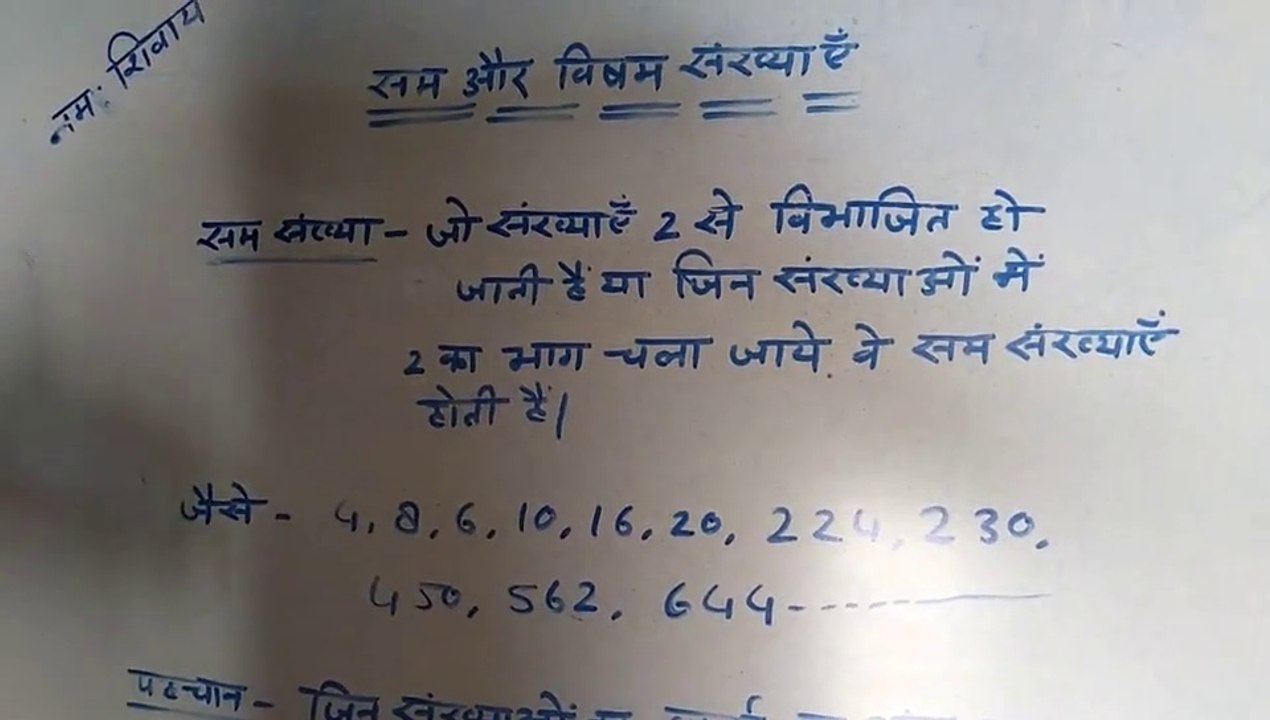 नमः शिवाय
सम और विषम संख्याएँ
सम संख्या - जो संख्याएँ 2 से विभाजित हो
जाती हैं या जिन संख्याओं में
2 का भाग चला जाये वे सम संख्याएँ
होती हैं|
जैसे - 4, 8, 6, 10, 16, 20, 224, 230,
450, 562, 644-------
पहचान - जिन संख्याओं